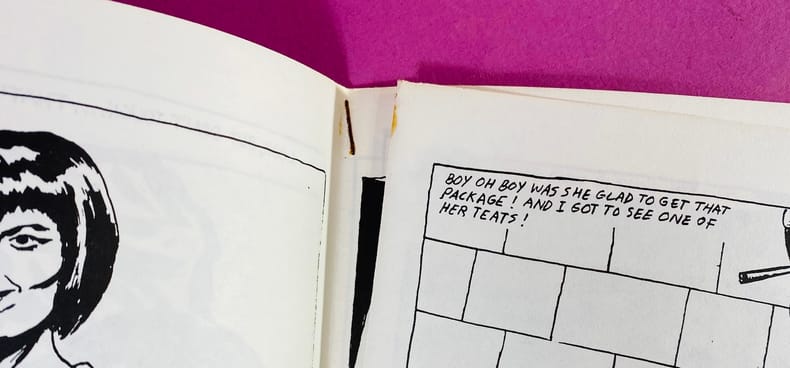 BOY OH BOY WAS SHE GLAD TO GET THAT
PACKAGE! AND I GOT TO SEE ONE OF
HER TEATS!